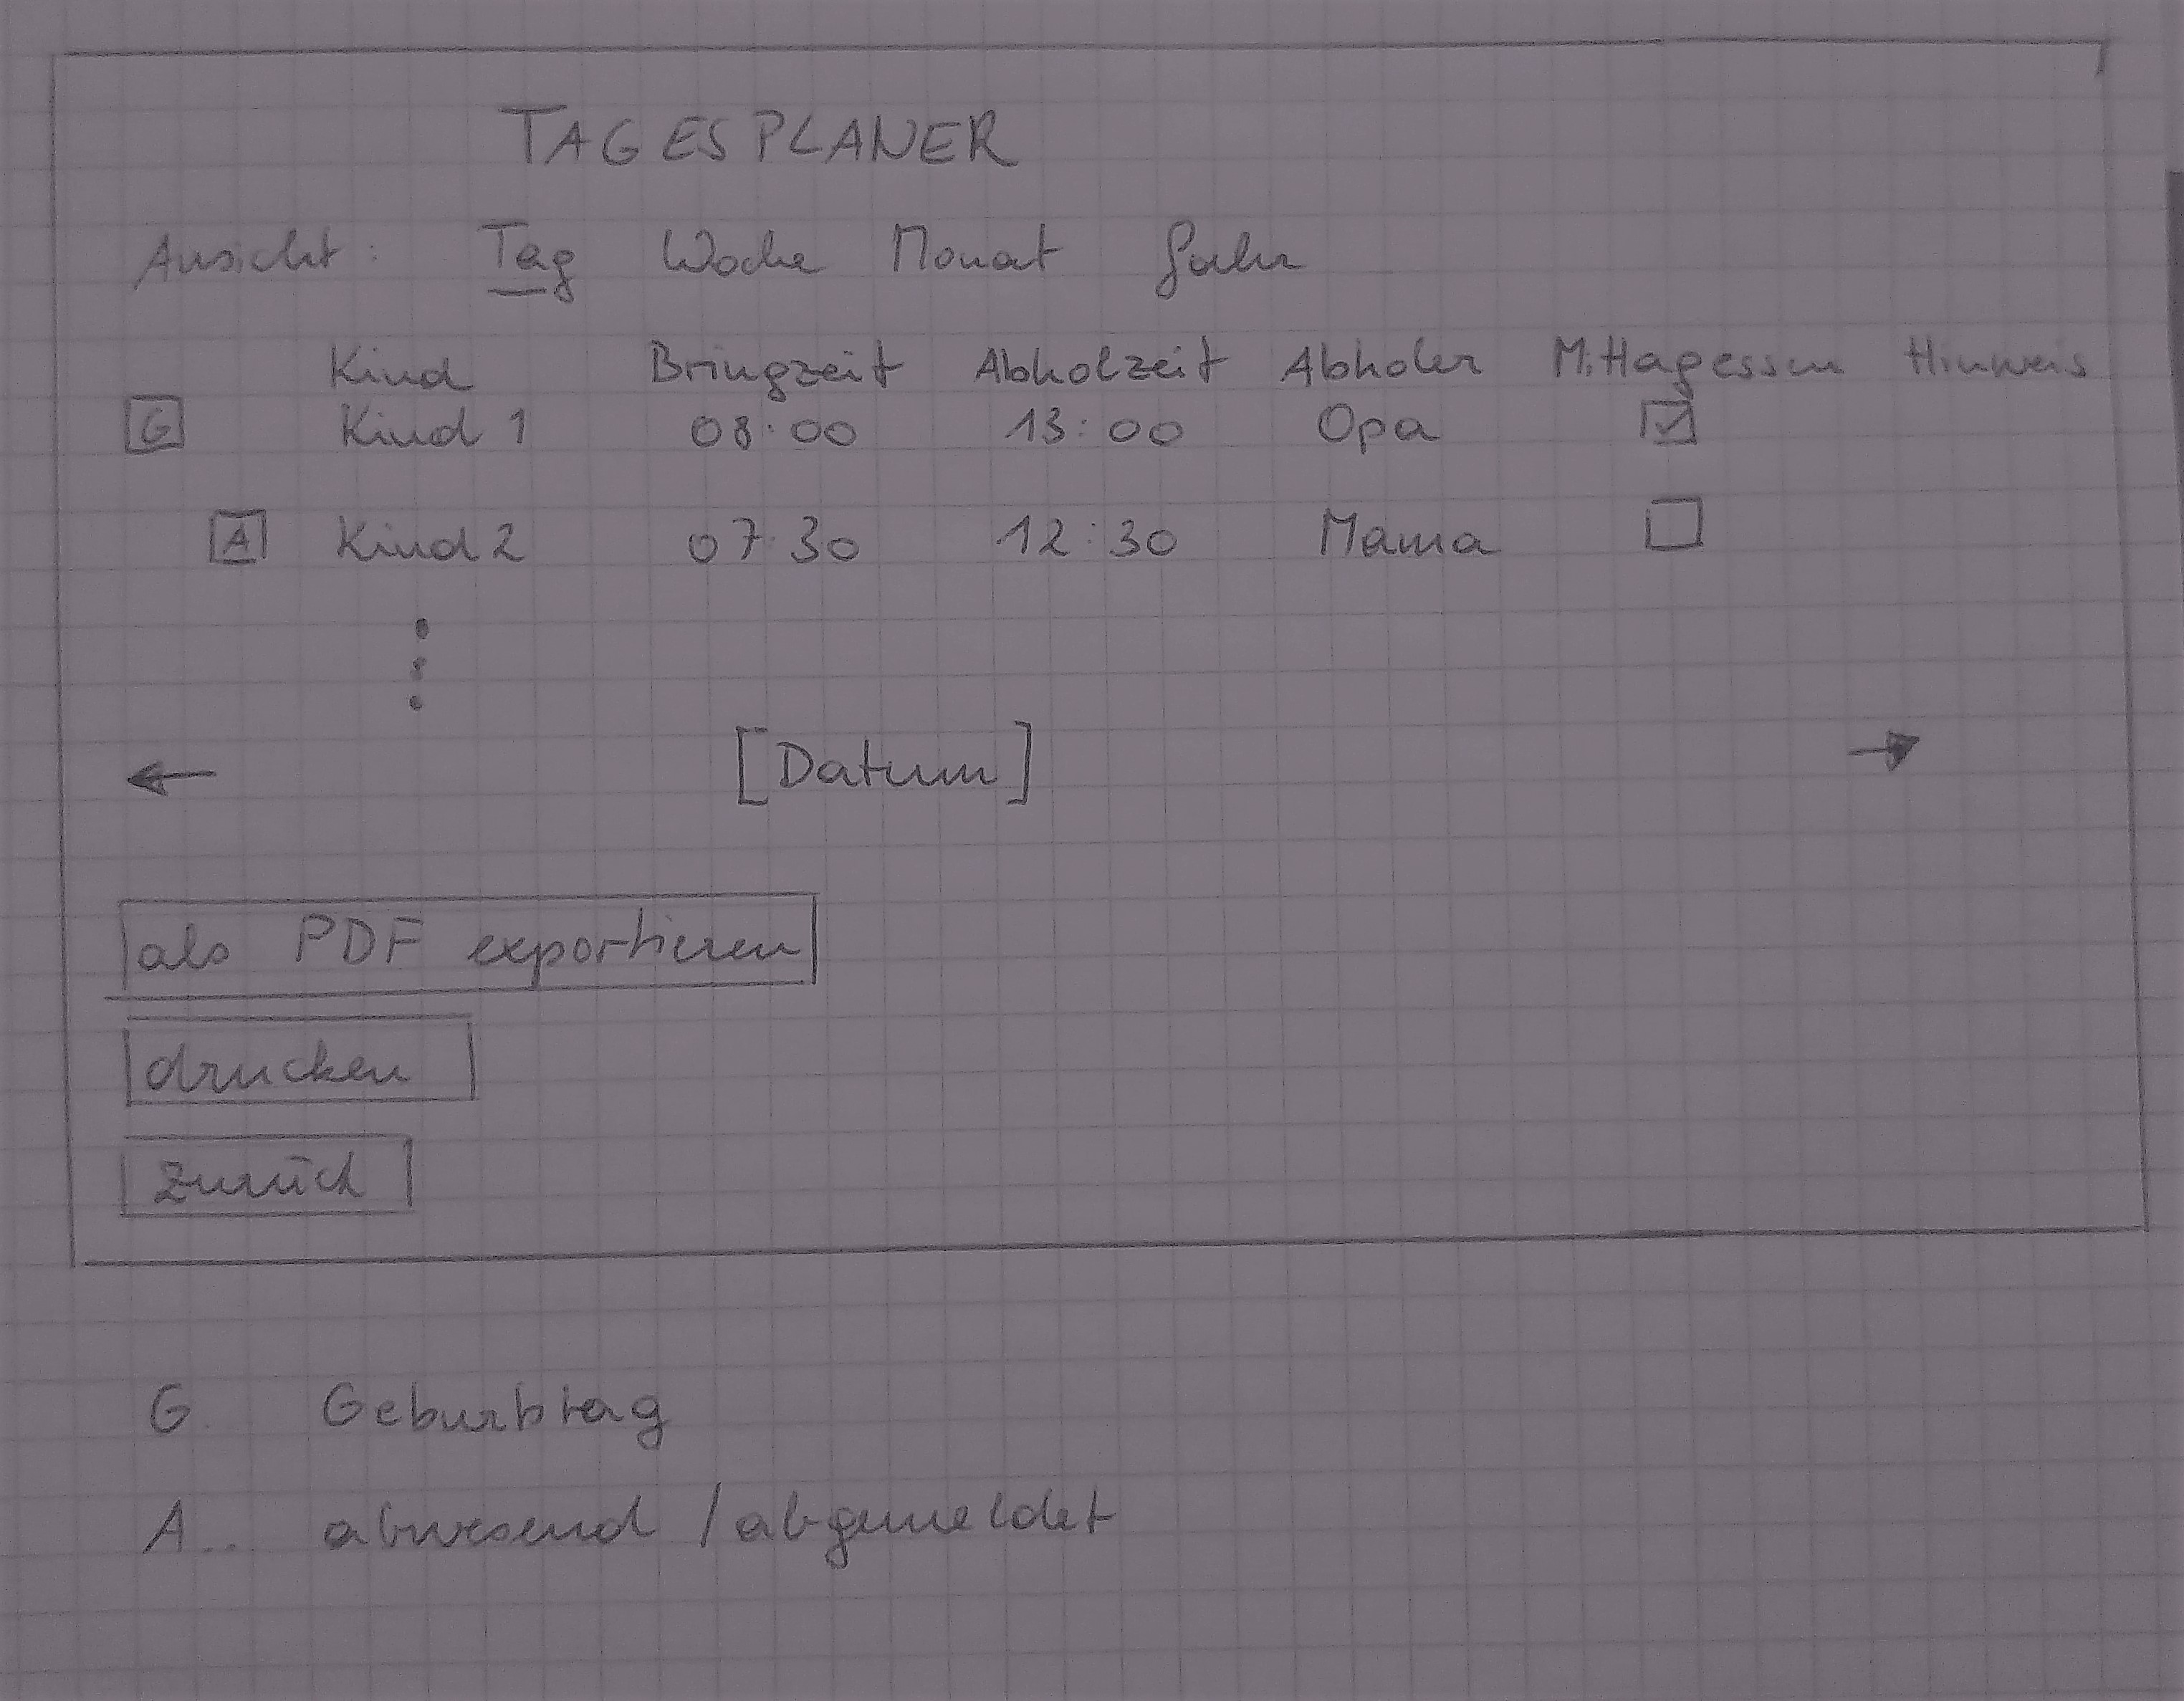 TAGESPLANER
Ansicht: Tag Woche Monat Jahr
Kind Bringzeit Abholzeit Abholer Mittagessen Hinweis
G Kind 1 08:00 13:00 Opa
A Kind 2 07:30 12:30 Mama
[Datum]
als PDF exportieren
drucken
zurück
G.. Geburtstag
A.. abwesend / abgemeldet